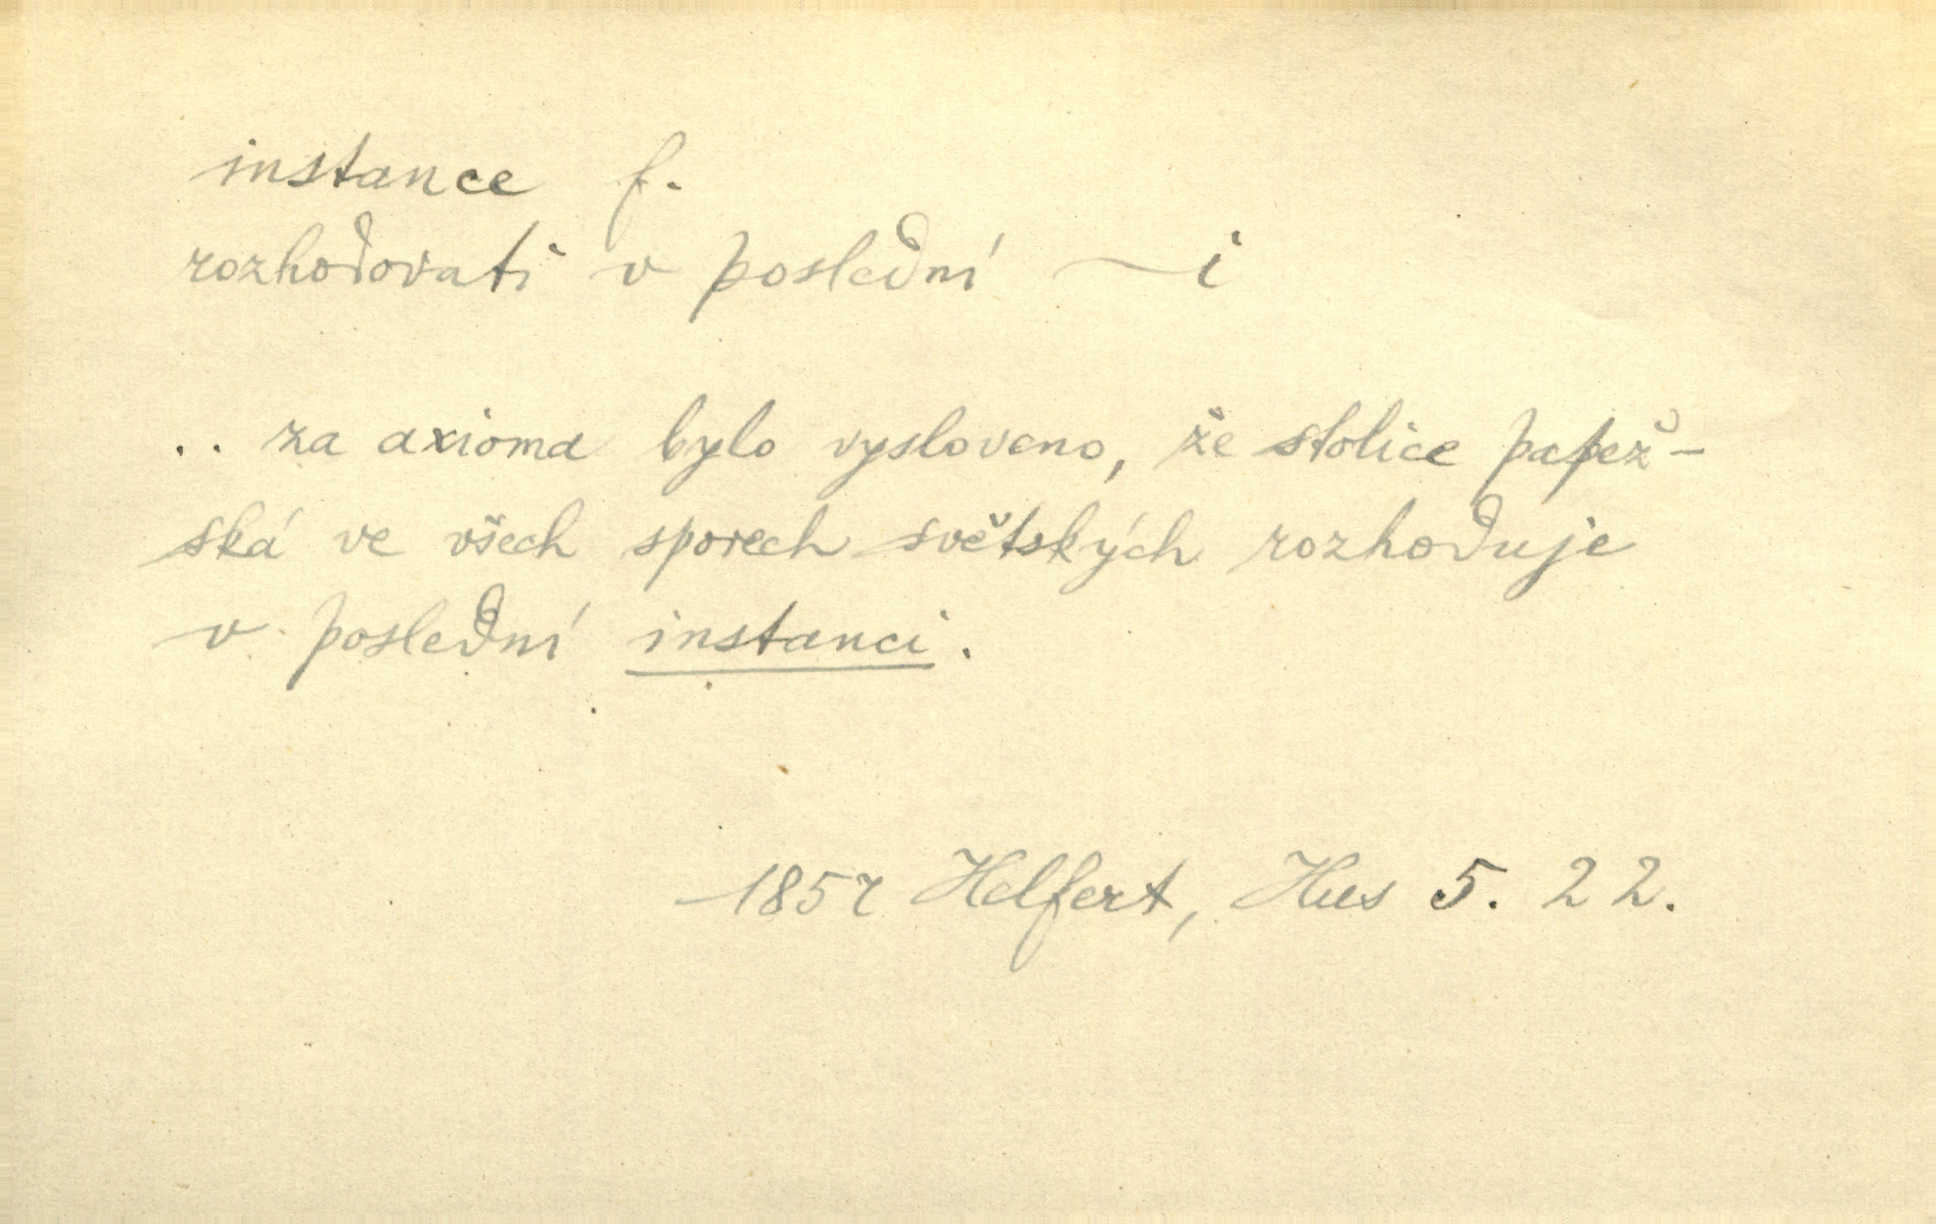 instance f.
rozhodovati v poslední ~i
.. za axioma bylo vysloveno, že stolice papež-
ská ve všech sporech světských rozhoduje
v poslední instanci.
1857 Helfert, Hus 5. 22.